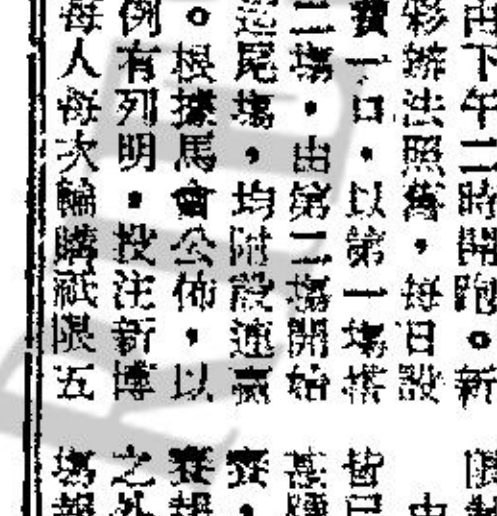 由下午二時開跑。新
彩辦法照舊，每日設
寶一口，以第一場搭
二場，由第二場開始
尾場，均附設連贏
。根據馬會公佈，以
例有列明，投注新博
每人每次輪購祇限五
皆已
賽，
賽報
之外
場報